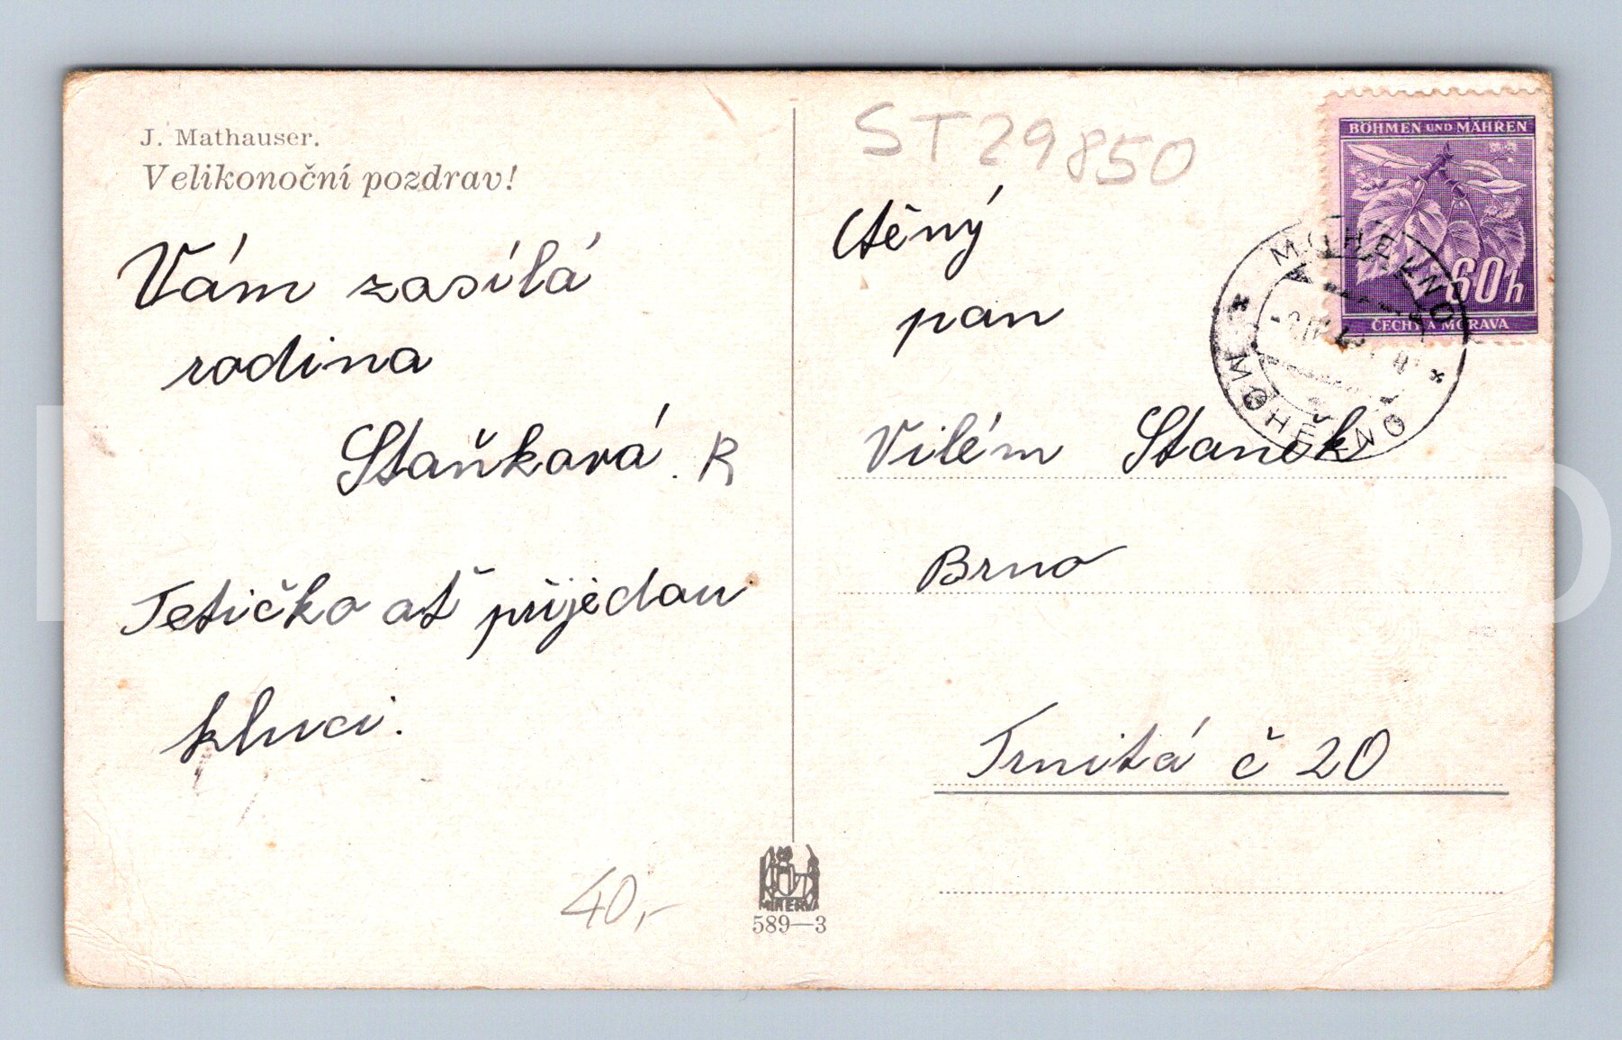 J. Mathauser.
Velikonoční pozdrav!
Vám zasílá
rodina
Staňková. R
Tetičko ať přijedou
kluci.
40,-
MINERVA
589—3
ST29850
BÖHMEN UND MÄHREN
60h
ČECHY A MORAVA
MOHELNO
MOHELNO
Ctěný
pan
Vilém Staněk
Brno
Trnitá č 20